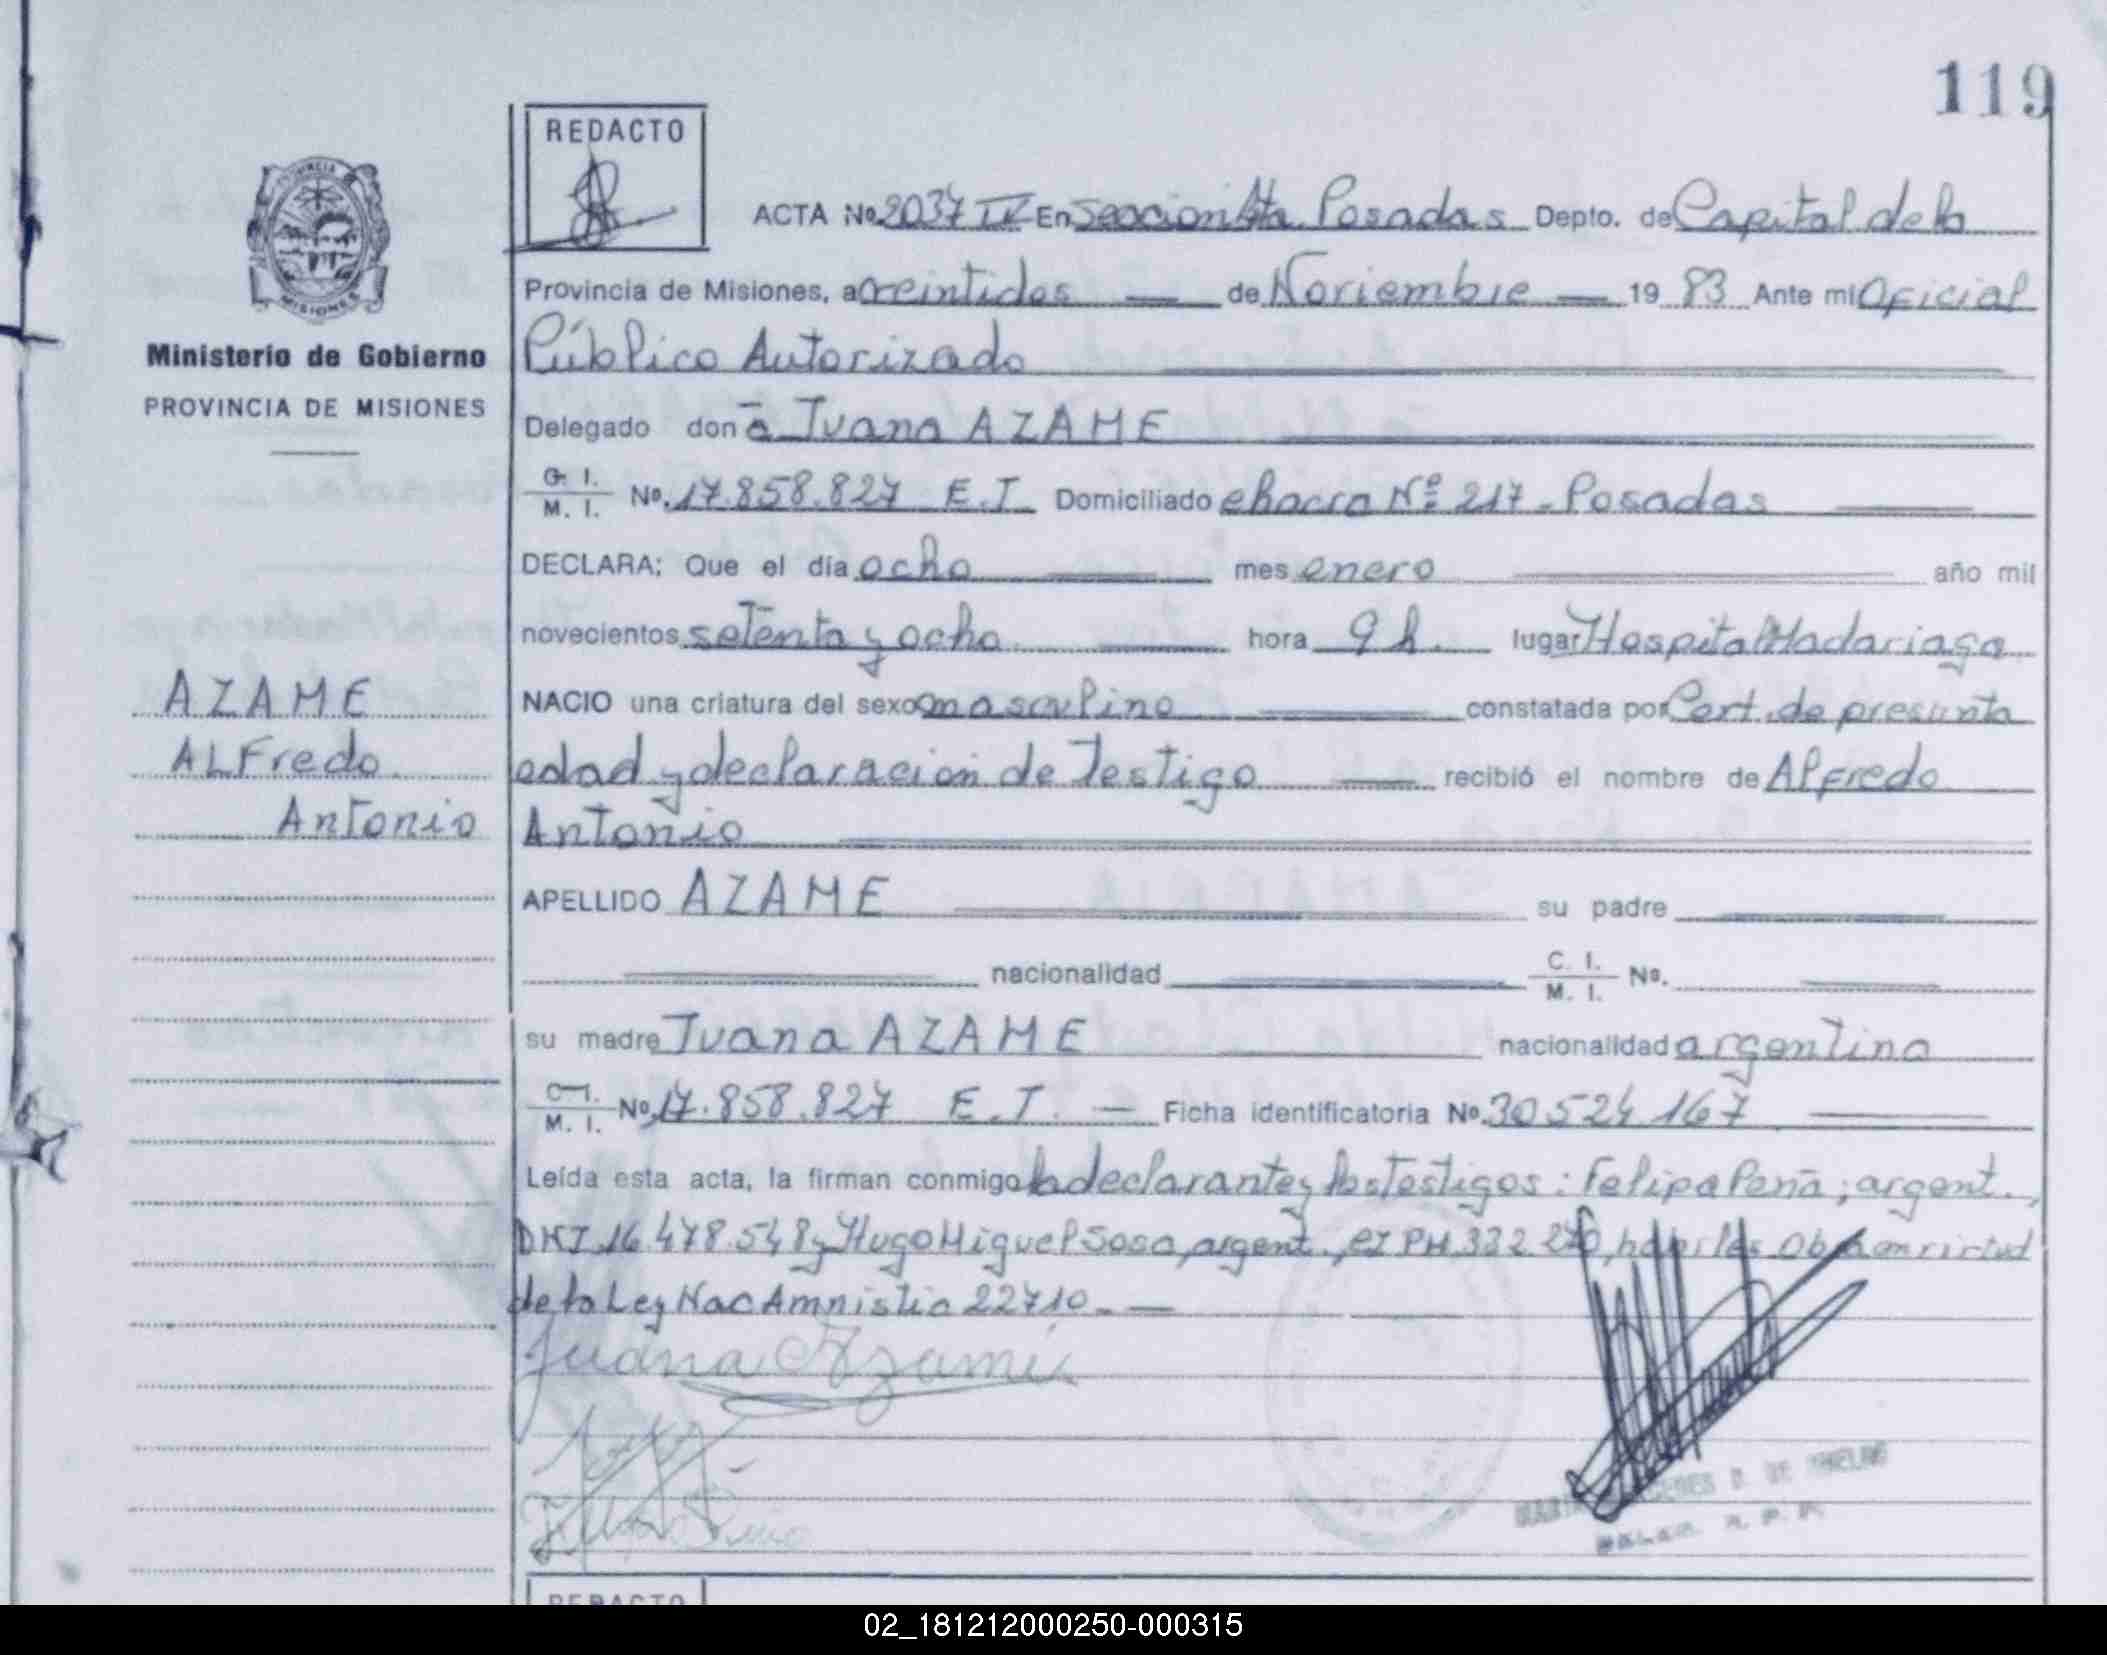 119
REDACTO
ACTA No. 2037 IV En Seccion 4ta Posadas Depto. de Capital de la
Provincia de Misiones, a veintidos de Noviembre 19 83 Ante mi Oficial
Público Autorizado
Ministerio de Gobierno
PROVINCIA DE MISIONES
Delegado doña Juana AZAME
C. I.
M. I. No. 17.858.827 E.T. Domiciliado chacra Nº 217 - Posadas
DECLARA: Que el día ocho mes enero año mil
novecientos setenta y ocho hora 9 h. lugar Hospital Madariaga
AZAME
ALFredo
Antonio
NACIO una criatura del sexo masculino constatada por Cert. de presunta
edad y declaracion de Testigo recibió el nombre de Alfredo
Antonio
APELLIDO AZAME su padre
nacionalidad C. I.
M. I. No.
su madre Juana AZAME nacionalidad argentina
C. I.
M. I. No. 17.858.827 E.T. Ficha identificatoria No. 30524167
Leída esta acta, la firman conmigo la declarante y los Testigos: Felipa Peña, argent.,
DNI 16.478.548 y Hugo Miguel Sosa, argent., CI PM 332.270, habiles. Obra en virtud
de la Ley Nac Amnistia 22710.-
Juana Azame
REDACTO
02_181212000250-000315